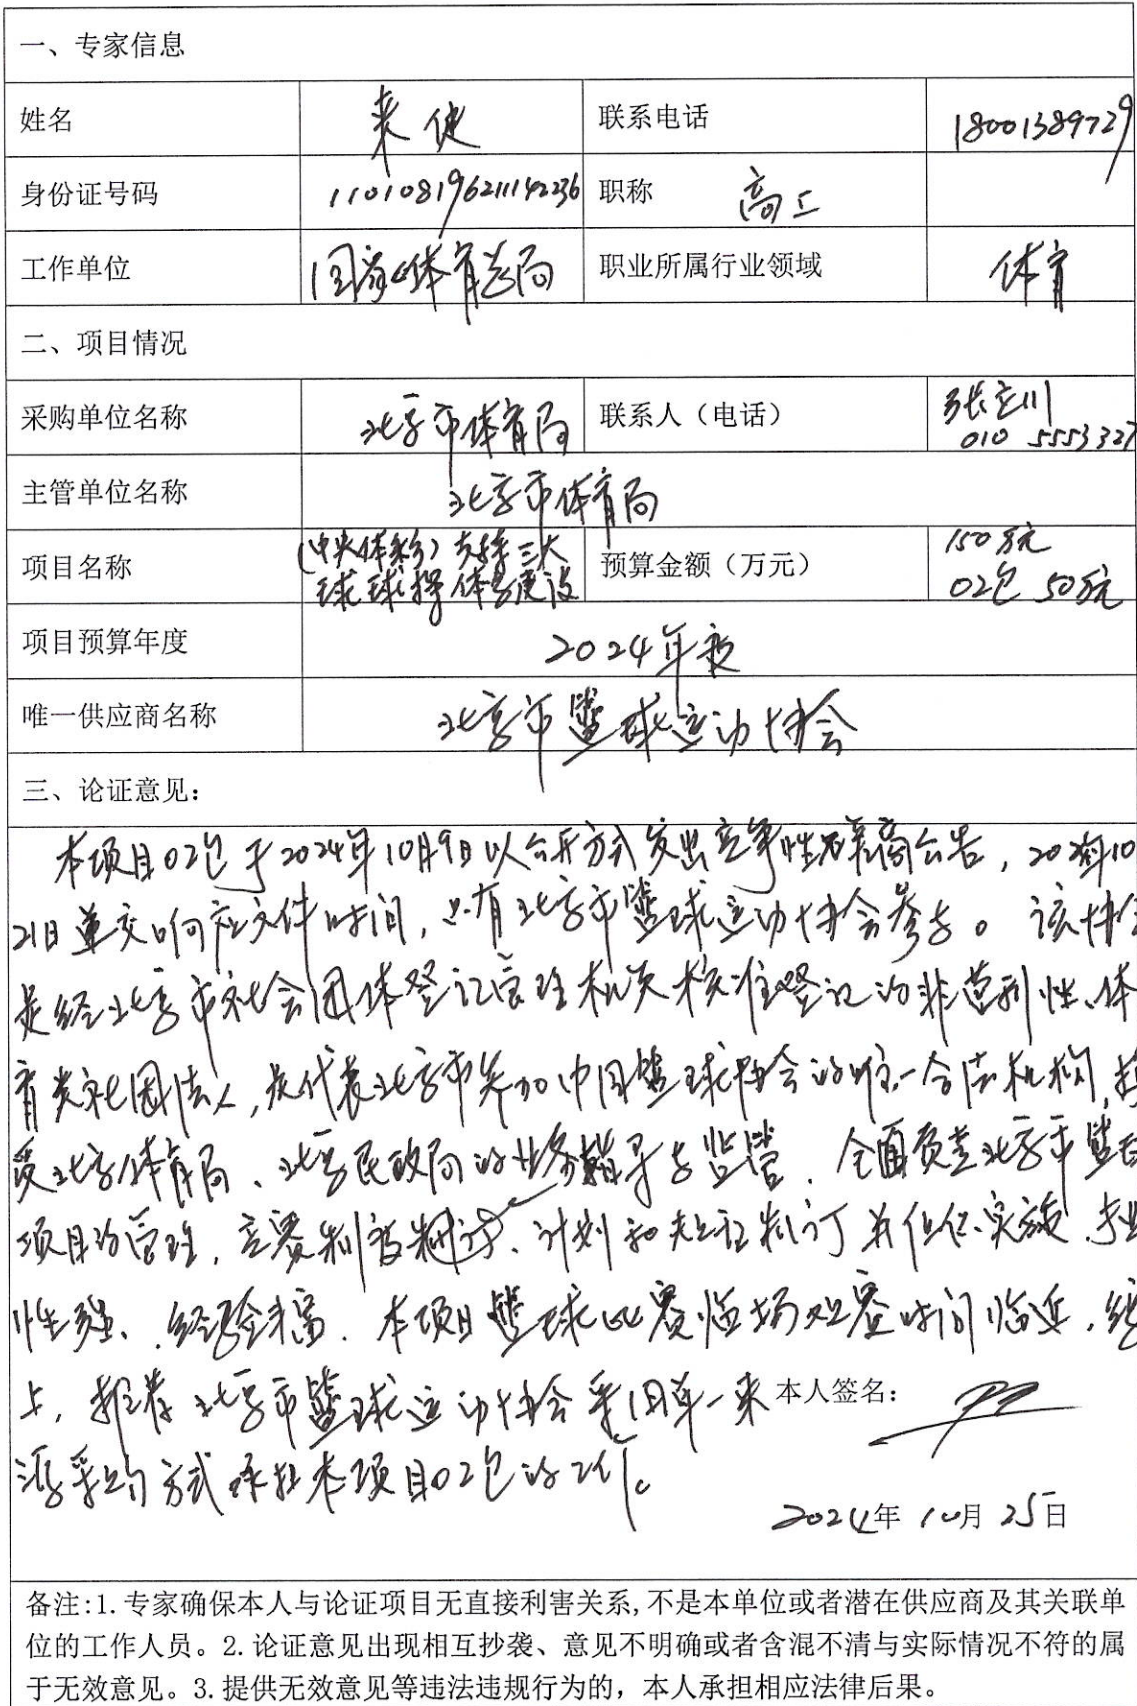 一、专家信息
姓名 来使 联系电话 18001389729
身份证号码 110108196211142236 职称 高工
工作单位 国家体育总局 职业所属行业领域 体育
二、项目情况
采购单位名称 北京市体育局 联系人（电话） 张立川
010 5553327
主管单位名称 北京市体育局
项目名称 (中央体彩) 支持三大 预算金额（万元） 150万元
球 体 建设 02包 50万元
项目预算年度 2024年度
唯一供应商名称 北京市篮球运动协会
三、论证意见：
本项目02包于2024年10月9日以公开方式发出竞争性磋商公告，2024年10
21日递交响应文件时间，只有北京市篮球运动协会参与。该协会
是经北京市社会团体登记管理机关核准登记的非营利性、体
育类社团法人，是代表北京市参加中国篮球协会的唯一合法机构，接
受北京体育局、北京民政局的业务指导与监管，全面负责北京市篮球
项目的管理，竞赛制度制订、计划和规程制订并组织实施，专业
性强、经验丰富，本项目篮球比赛临场观赛时间临近，综
上，推荐北京市篮球运动协会采用单一来 本人签名：
源采购方式承担本项目02包的工作。
2024年10月25日
备注:1.专家确保本人与论证项目无直接利害关系,不是本单位或者潜在供应商及其关联单
位的工作人员。2.论证意见出现相互抄袭、意见不明确或者含混不清与实际情况不符的属
于无效意见。3.提供无效意见等违法违规行为的，本人承担相应法律后果。